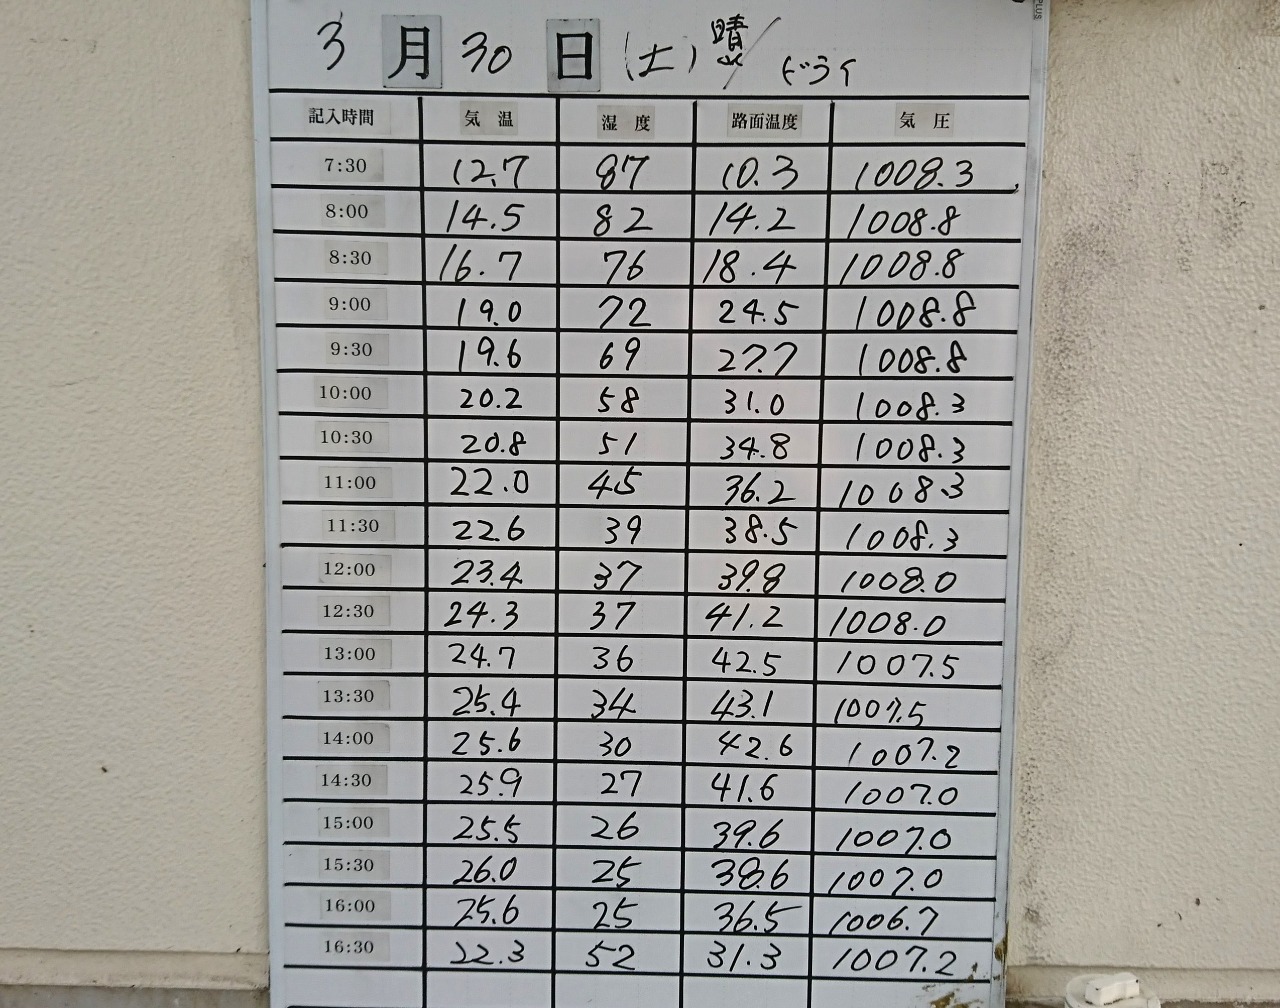 3月30日(土)晴/ドライ
記入時間 気温 湿度 路面温度 気圧
7:30 12.7 87 10.3 1008.3
8:00 14.5 82 14.2 1008.8
8:30 16.7 76 18.4 1008.8
9:00 19.0 72 24.5 1008.8
9:30 19.6 69 27.7 1008.8
10:00 20.2 58 31.0 1008.3
10:30 20.8 51 34.8 1008.3
11:00 22.0 45 36.2 1008.3
11:30 22.6 39 38.5 1008.3
12:00 23.4 37 39.8 1008.0
12:30 24.3 37 41.2 1008.0
13:00 24.7 36 42.5 1007.5
13:30 25.4 34 43.1 1007.5
14:00 25.6 30 42.6 1007.2
14:30 25.9 27 41.6 1007.0
15:00 25.5 26 39.6 1007.0
15:30 26.0 25 38.6 1007.0
16:00 25.6 25 36.5 1006.7
16:30 22.3 52 31.3 1007.2
PLUS